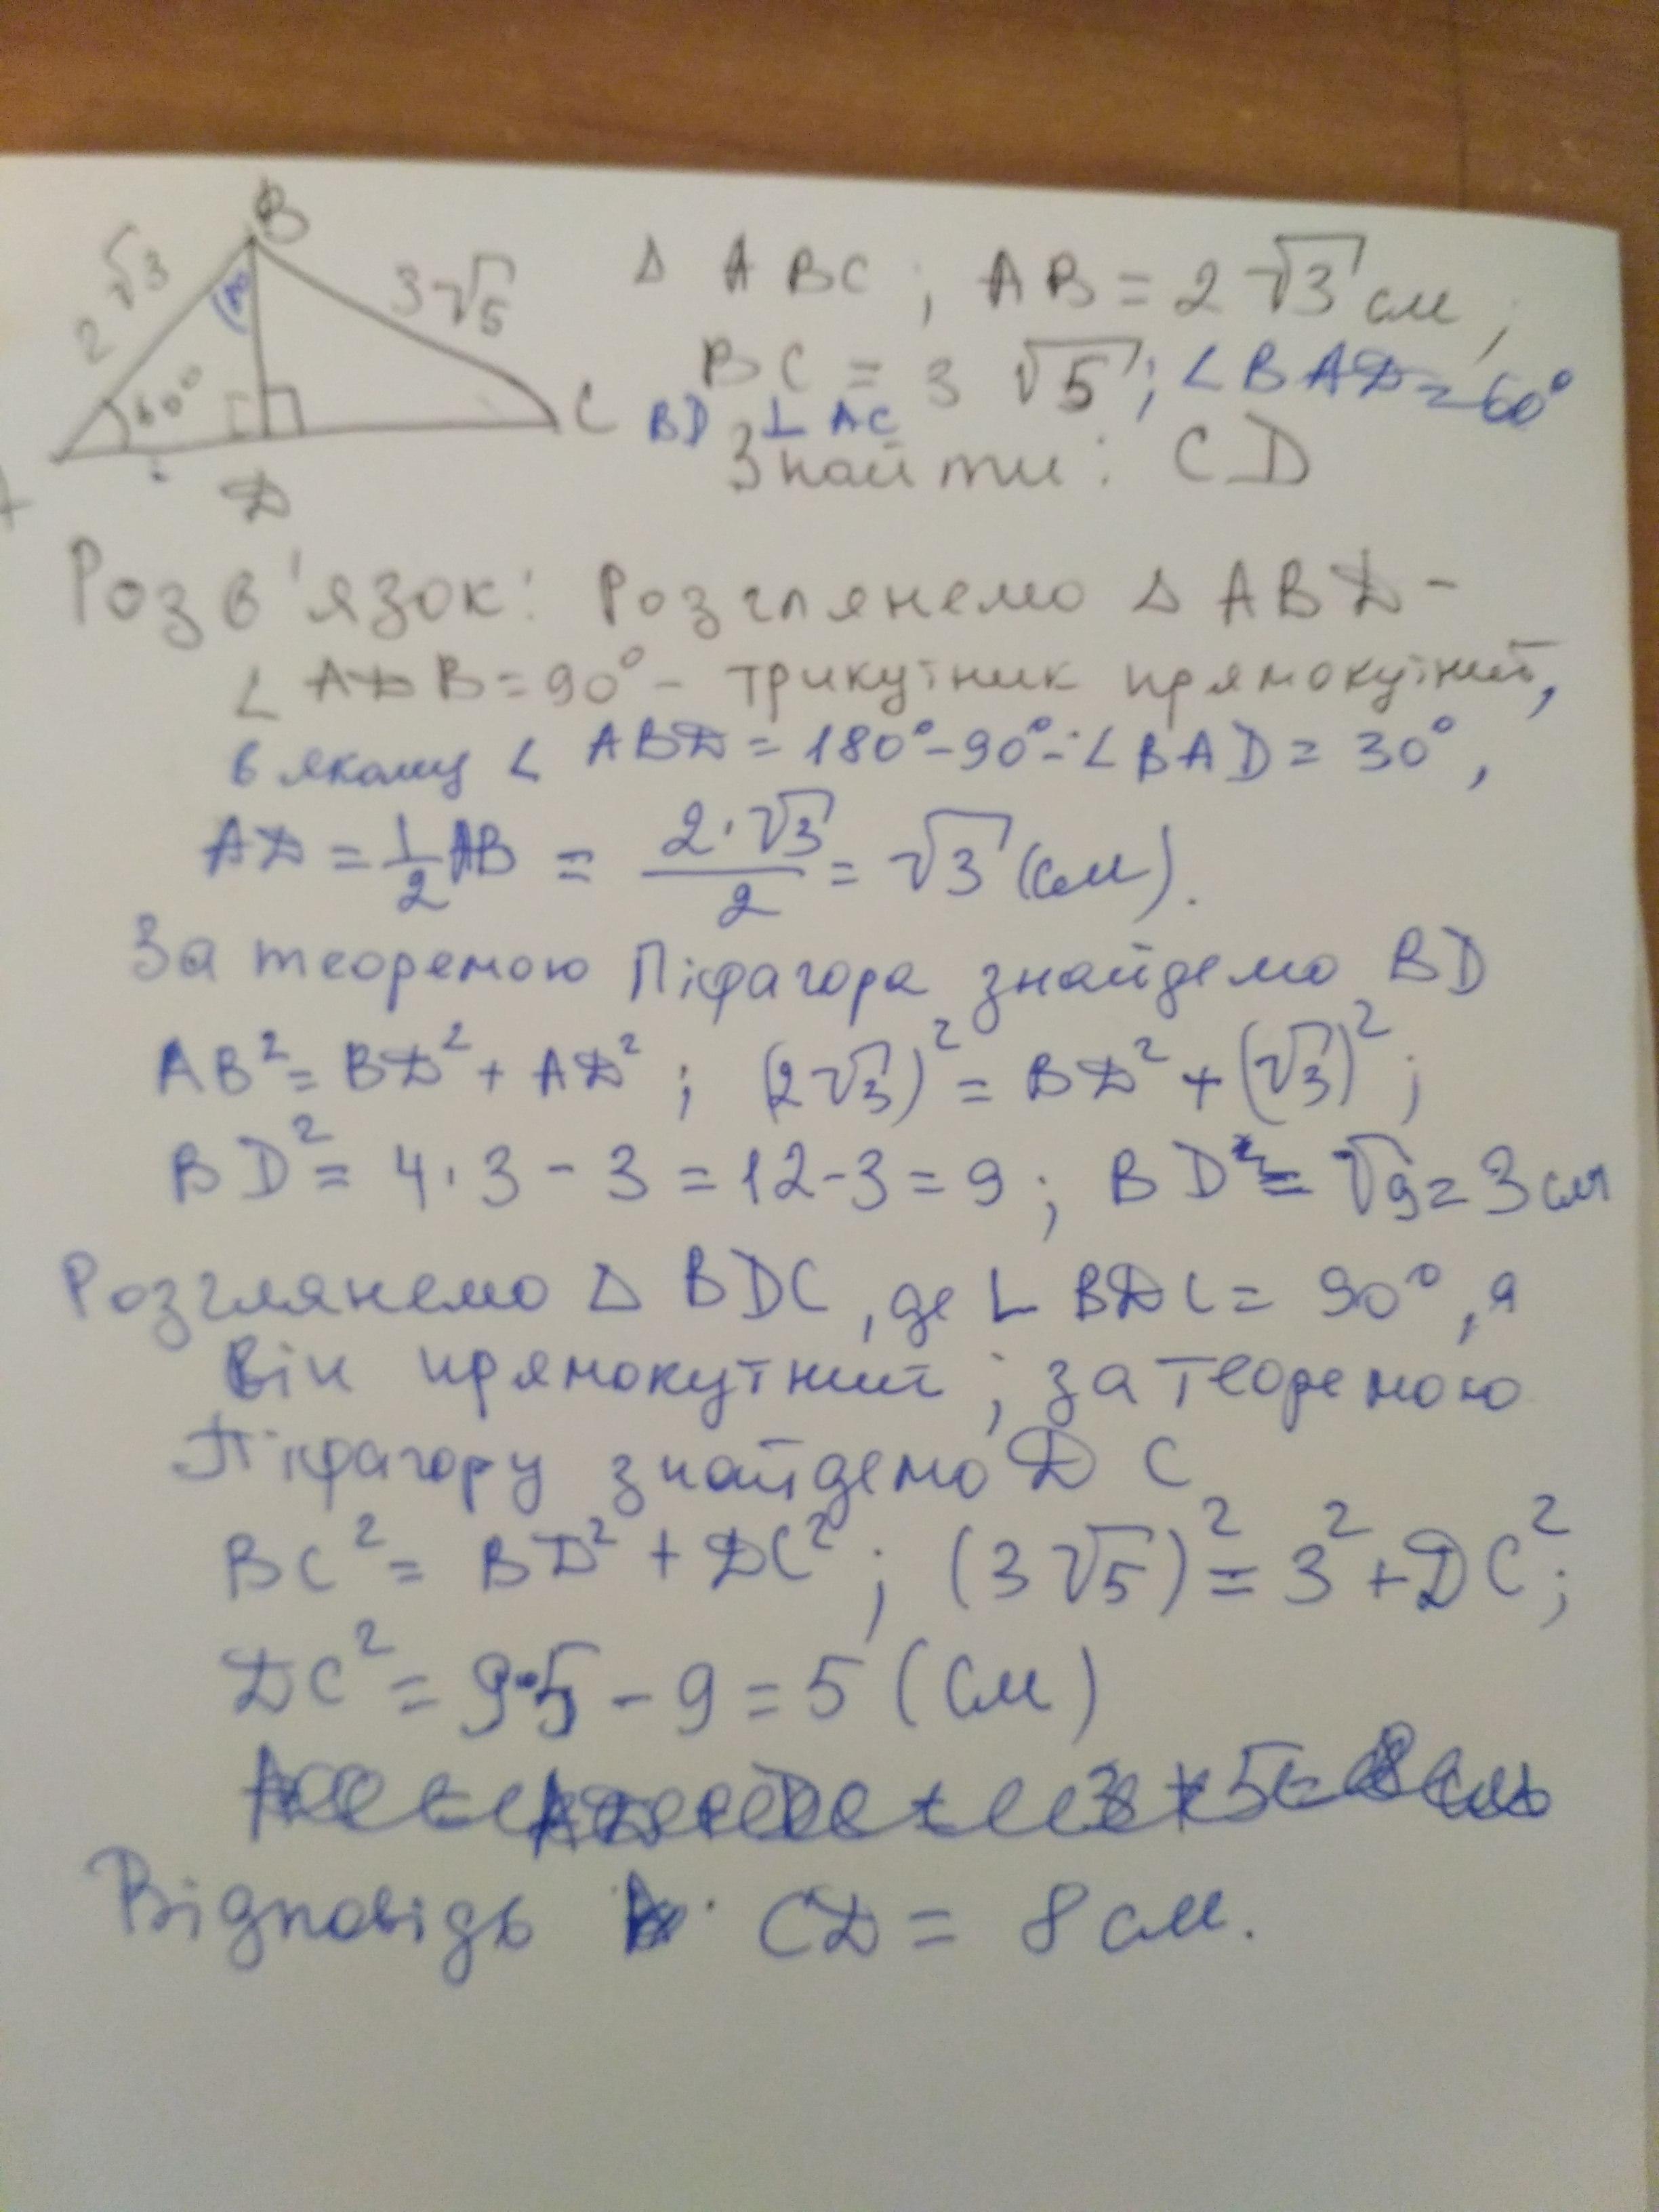 B
2√3
3√5
60°
C
A
D
Δ ABC ; AB = 2√3 см ;
BC = 3√5 ; ∠BAD = 60°
BD ⊥ AC
Знайти : CD
Розв'язок : Розглянемо Δ ABD -
∠ ADB = 90° - трикутник прямокутний,
в якому ∠ ABD = 180° - 90° - ∠BAD = 30° ,
AD = 1/2 AB = 2·√3/2 = √3 (см).
За теоремою Піфагора знайдемо BD
AB² = BD² + AD² ; (2√3)² = BD² + (√3)² ;
BD² = 4·3 - 3 = 12-3 = 9 ; BD = √9 = 3 см
Розглянемо Δ BDC , де ∠ BDC = 90° , я
він прямокутний ; за теоремою
Піфагору знайдемо DC
BC² = BD² + DC² ; (3√5)² = 3² + DC² ;
DC² = 9·5 - 9 = 5 (см)
Відповідь CD = 8 см.